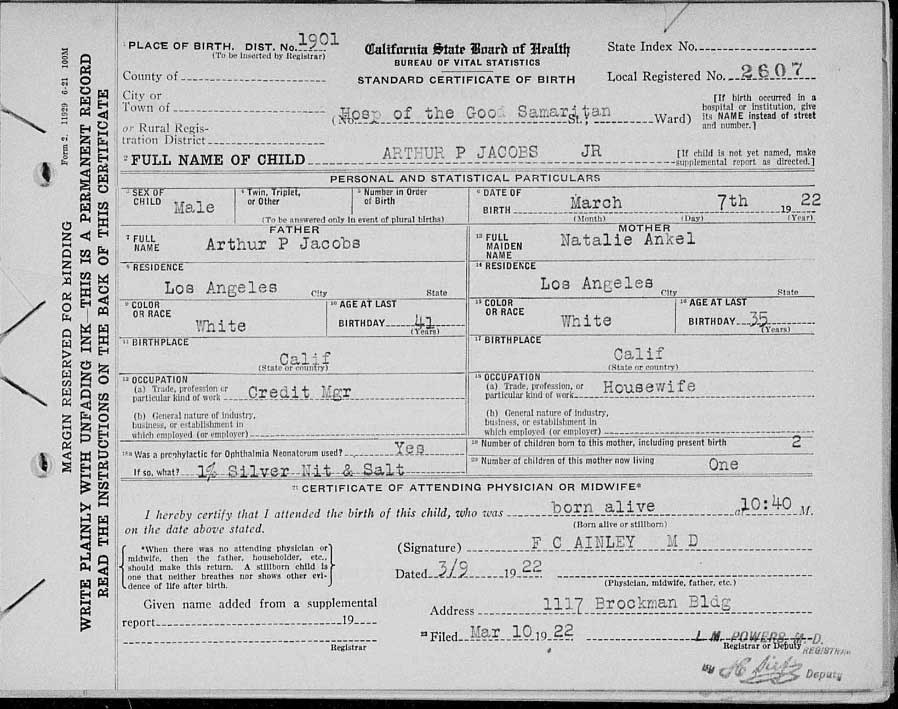 PLACE OF BIRTH. DIST. No. 1901
(To be inserted by Registrar)
California State Board of Health
BUREAU OF VITAL STATISTICS
STANDARD CERTIFICATE OF BIRTH
State Index No.
Local Registered No. 2607
County of
City or
Town of
or Rural Regis-
tration District
(No. Hosp of the Good Samaritan St.; Ward)
[If birth occurred in a
hospital or institution, give
its NAME instead of street
and number.]
2 FULL NAME OF CHILD ARTHUR P JACOBS JR
[If child is not yet named, make
supplemental report as directed.]
PERSONAL AND STATISTICAL PARTICULARS
3 SEX OF
CHILD Male
4 Twin, Triplet,
or Other
5 Number in Order
of Birth
(To be answered only in event of plural births)
6 DATE OF
BIRTH March 7th 1922
(Month) (Day) (Year)
FATHER
7 FULL
NAME Arthur P Jacobs
8 RESIDENCE
Los Angeles
City State
9 COLOR
OR RACE
White
10 AGE AT LAST
BIRTHDAY 41
(Years)
11 BIRTHPLACE
Calif
(State or country)
12 OCCUPATION
(a) Trade, profession or
particular kind of work Credit Mgr
(b) General nature of industry,
business, or establishment in
which employed (or employer)
MOTHER
13 FULL
MAIDEN
NAME
Natalie Ankel
14 RESIDENCE
Los Angeles
City State
15 COLOR
OR RACE
White
16 AGE AT LAST
BIRTHDAY 35
(Years)
17 BIRTHPLACE
Calif
(State or country)
18 OCCUPATION
(a) Trade, profession, or
particular kind of work Housewife
(b) General nature of industry,
business, or establishment in
which employed (or employer)
18a Was a prophylactic for Ophthalmia Neonatorum used? Yes
If so, what? 1% Silver Nit & Salt
19 Number of children born to this mother, including present birth 2
20 Number of children of this mother now living One
21 CERTIFICATE OF ATTENDING PHYSICIAN OR MIDWIFE*
I hereby certify that I attended the birth of this child, who was born alive a 10:40 M.
(Born alive or stillborn)
on the date above stated.
*When there was no attending physician or
midwife, then the father, householder, etc.,
should make this return. A stillborn child is
one that neither breathes nor shows other evi-
dence of life after birth.
(Signature) F C AINLEY M D
Dated 3/9 1922
(Physician, midwife, father, etc.)
Given name added from a supplemental
report 19
Registrar
Address 1117 Brockman Bldg
22 Filed Mar 10, 1922
L. M. POWERS M. D.
Registrar or Deputy
REGISTRAR
By Deputy
Form 2. 11929 6-21 100M
MARGIN RESERVED FOR BINDING
WRITE PLAINLY WITH UNFADING INK—THIS IS A PERMANENT RECORD
READ THE INSTRUCTIONS ON THE BACK OF THIS CERTIFICATE